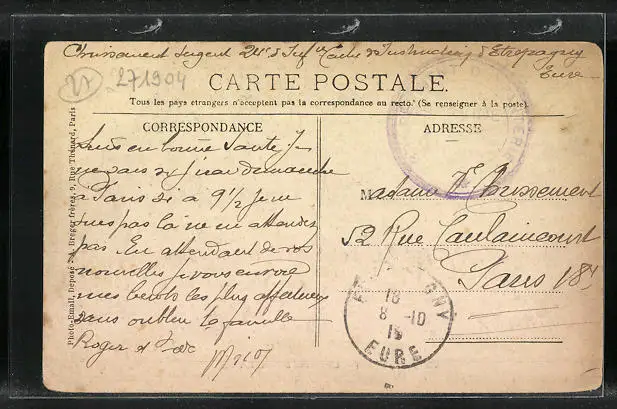 Chuissement Sergent 24e d'Inf ie Centre d'Instruction d'Etrepagny
Eure
271904
CARTE POSTALE.
Tous les pays etrangers n'acceptent pas la correspondance au recto. (Se renseigner à la poste).
CORRESPONDANCE
Suis en bonne santé Je
à Paris si à 9 1/2 je ne
suis pas là ne m'attendez
pas En attendant de vos
nouvelles je vous envoie
mes baisers les plus affectueux
sans oublier la famille
Roger
ADRESSE
Madame Vve Chuissement
52 Rue Caulaincourt
Paris 18e
18
8 -10
15
EURE
Photo-Email, Déposé J. A. Breger frères, 9, Rue Thénard, Paris